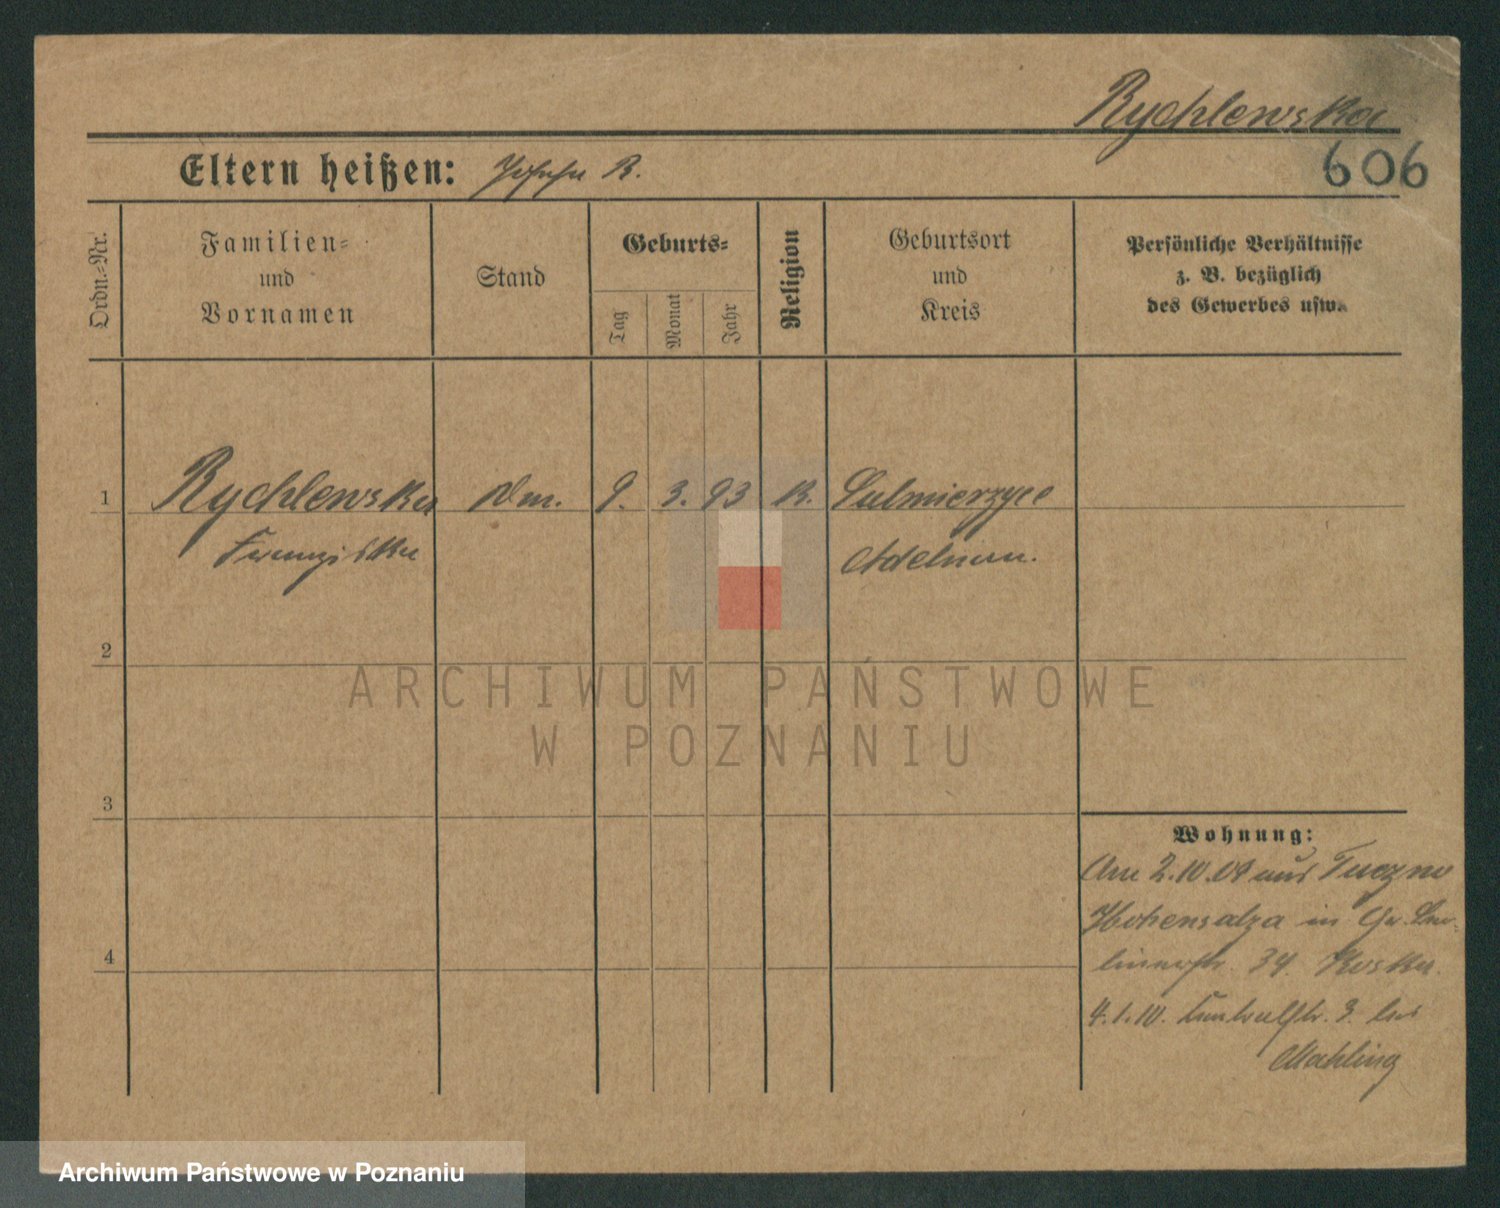 Rychlewska
606
Eltern heißen: Josefa R.
Ordn.-Nr.
Familien-
und
Vornamen
Stand
Geburts-
Tag
Monat
Jahr
Religion
Geburtsort
und
Kreis
Persönliche Verhältnisse
z. B. bezüglich
des Gewerbes usw.
1 Rychlewska Dm. 9. 3. 93 K. Sulmierzyce
Franziska Adelnau.
2
ARCHIWUM PAŃSTWOWE
W POZNANIU
3
Wohnung:
Am 2.10.09 aus Tuczno
Hohensalza in Gr. Ber-
linerstr. 34. Koska.
4
4.1.10. str. 3. bei
Mahling
Archiwum Państwowe w Poznaniu